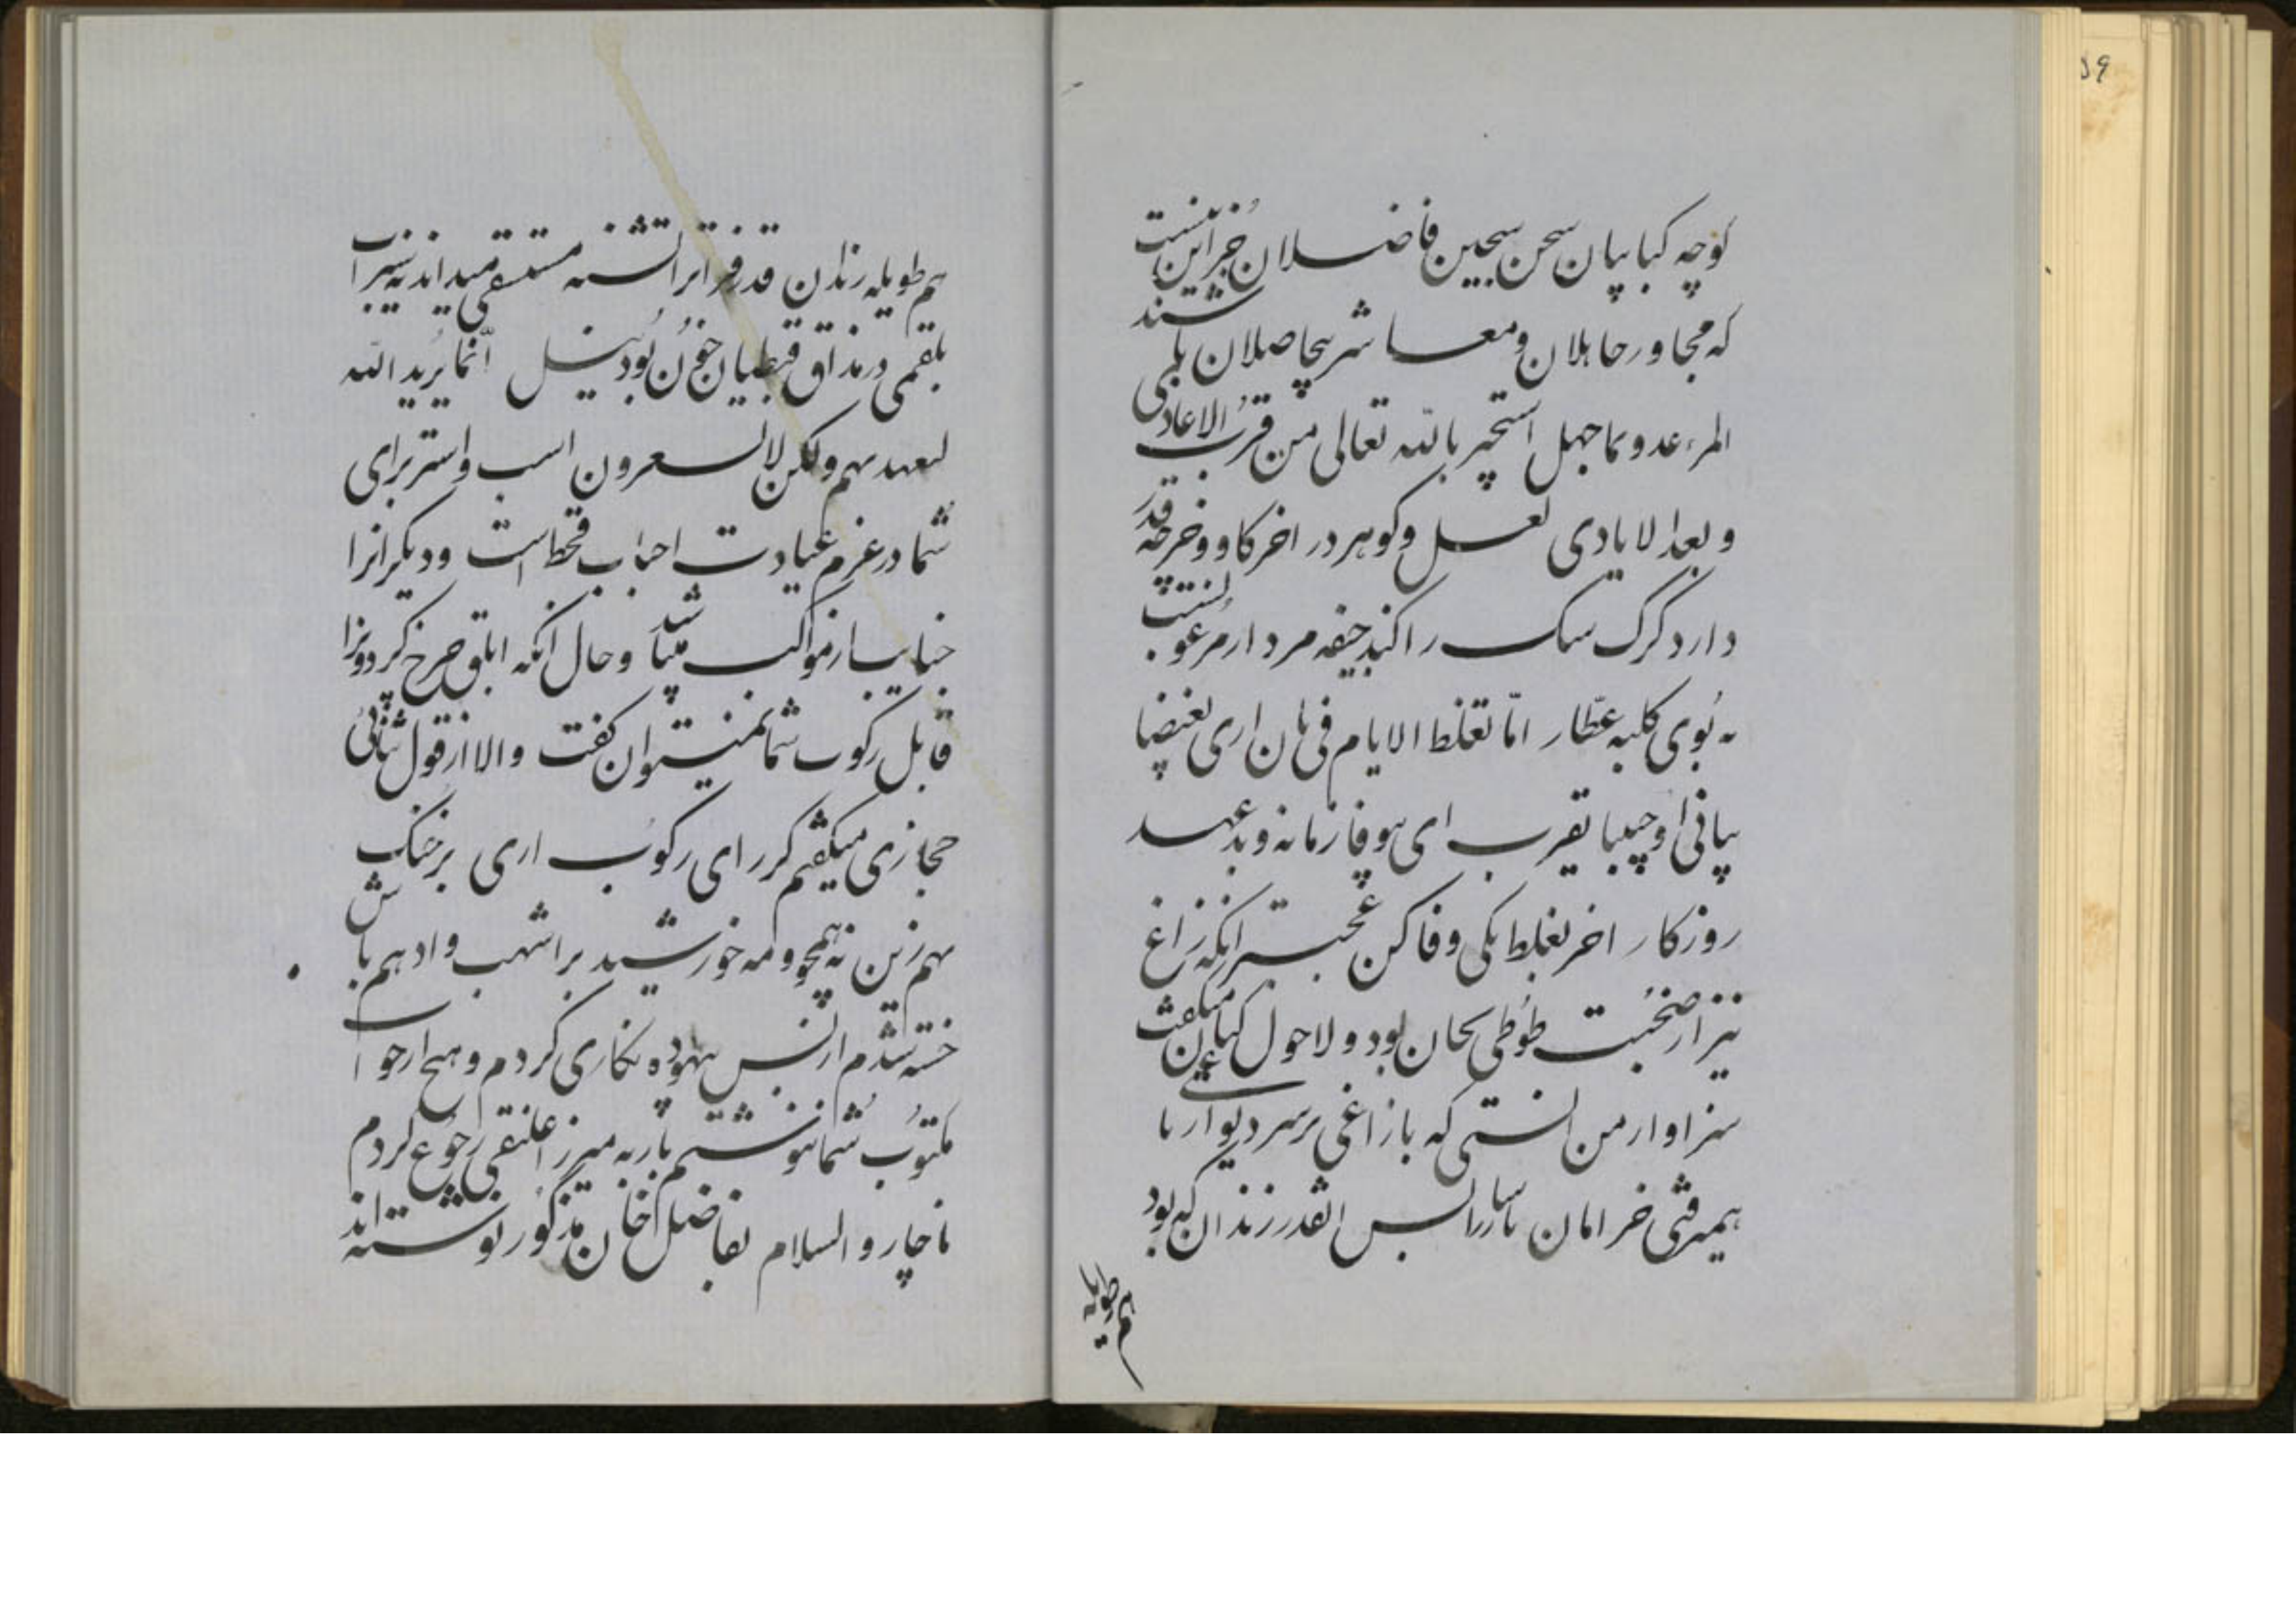 کوچه کبابیان سحن سجین فاضلان جز این نیست
که مجاور جاهلان و معاشر بیحاصلان باشند بلی
المرء عدو بما جهل استجیر بالله تعالی من قرب الاعادی
و بعد الایادی لعل و گوهر در اخر گاو و خر چه قدر
دارد گرگ سگ راکند جیفه مردار مرغوب نسبت
به بوی کلبه عطار امّا تغلط الایام فی بان اری بغیضا
ینافی او حبیبا تقرب ای بیوفا زمانه و بدعهد
روزگار اخر بغلط یکی وفا کن عجبتر انکه زاغ
نیز از صحبت طوطی بجان بود و لاحول کنان میگفت
سزاوار من انستی که با زاغی بر سر دیوار باغی
همیرفتی خرامان پارسا را بس اینقدر زندان که بود
هم طویله
هم طویله رندان قدر فراترا تشنه مستسقی میداند نه سیراب
بلغمی در مذاق قبطیان خون بود نیل انّما یرید الله
لیعذبهم ولکن لایشعرون اسب و استر برای
شما در عزم عیادت احباب قحط است و دیگرانرا
جنایب از مواکب میباشد و حال انکه ابلق چرخ گردونرا
قابل رکوب شما نمیتوان گفت و الا از قول ثنائی
حجازی میگفتم کر رای رکوب اری بر خنک
بهم زین نه همچو مه خورشید بر اشهب و ادهم باش
خسته شدم از بس بیهوده نگاری کردم و هیچ از جواب
مکتوب شما ننوشتم بار به میرزا علینقی رجوع کردم
ناچار و السلام بفاضل خان مذکور نوشته اند